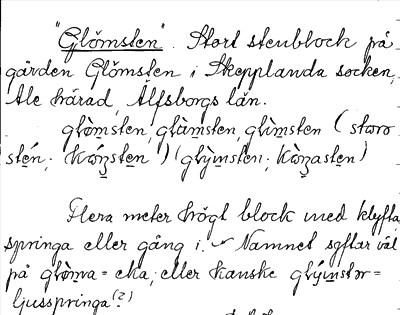 "Glömsten". Stort stenblock på
gården Glömsten i Skepplanda socken,
Ale härad, Älfsborgs län.
glòmsten, glàmsten, glìmsten (storo
stén; Kózsten) (glỳmsten; Kòzasten)
Flera meter högt block med klyfta,
springa eller gång i. Namnet syftar väl
på glòma = eka, eller kanske glýmstər =
ljusspringa(?)